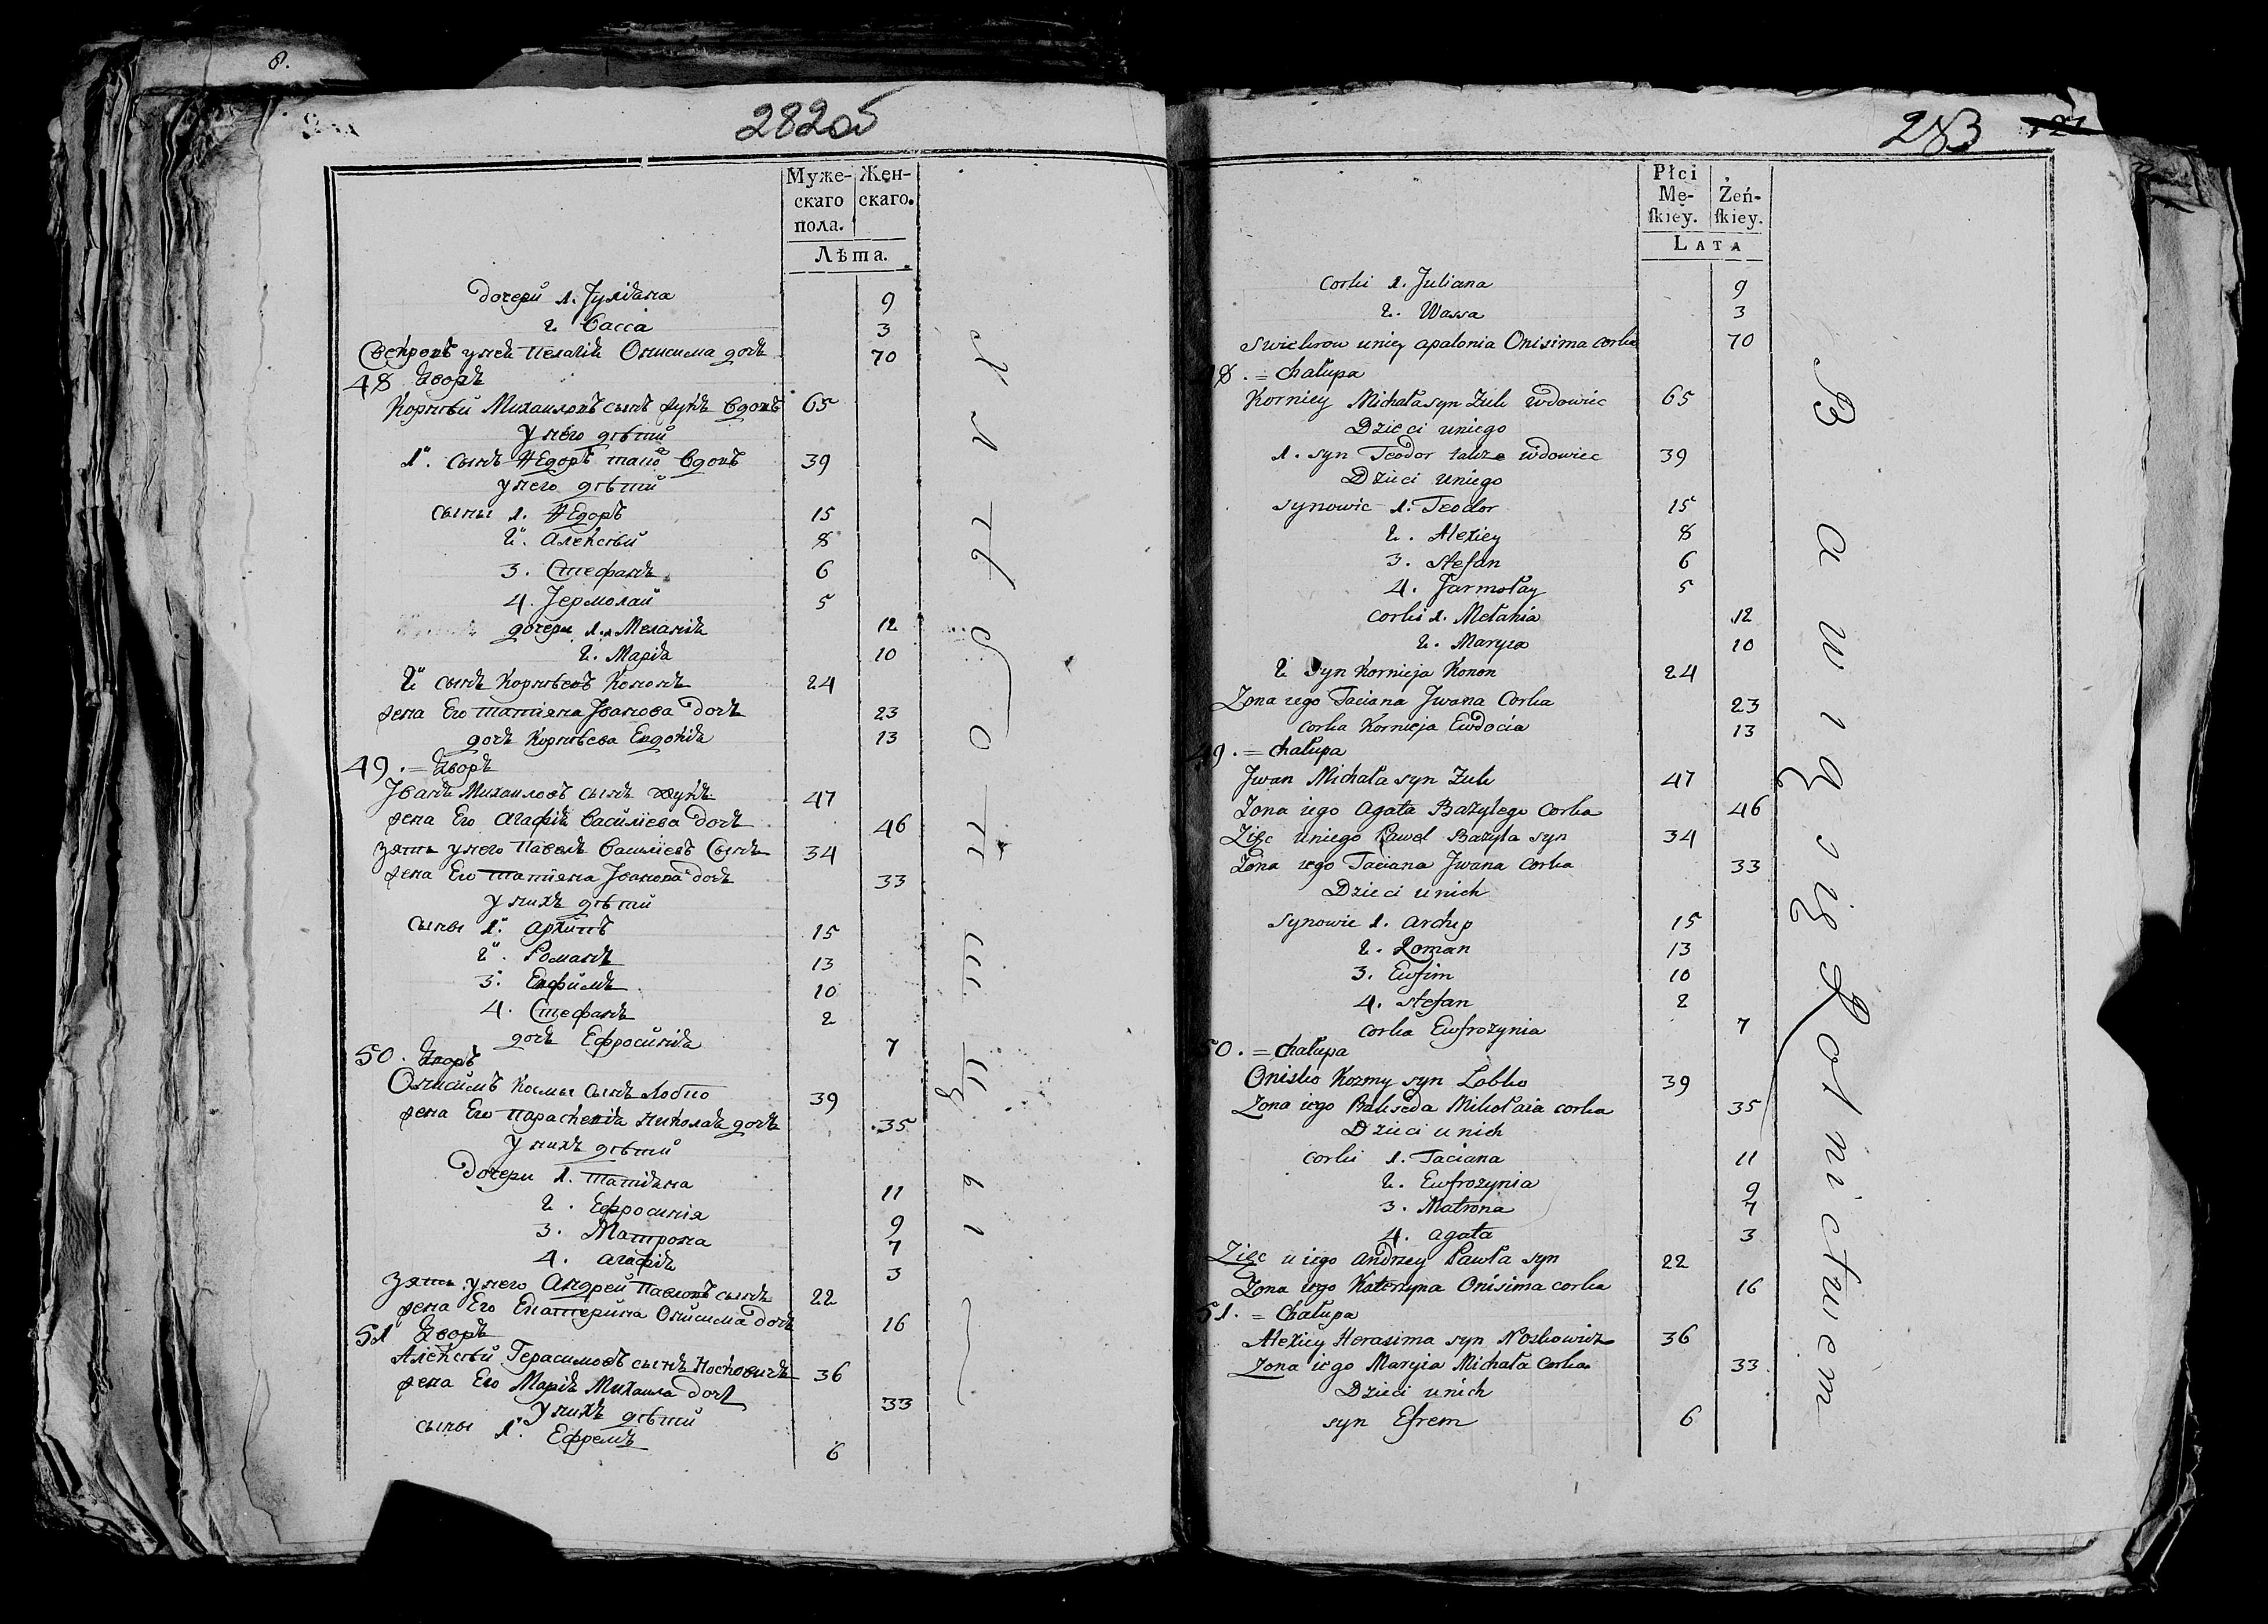 8.
282об
Муже-
скаго
пола.
Жен-
скаго.
Лѣта.
дочери 1. Іуліана 9
2. Васса 3
Свекровь у неѣ Онисима дочь 70
48 Дворъ
Корнѣй Михаиловъ сынъ Жукъ вдовъ 65
У него дѣти
1й. сынъ Ѳедоръ вдовъ 39
у него дѣти
сыны 1. Ѳедоръ 15
2й. Алексѣй 8
3. Стефанъ 6
4. Іермолай 5
дочери 1. Меланія 12
2. Марія 10
2й сынъ Корнѣевъ Кононъ 24
жена Его татіяна Іванова дочь 23
дочь Корнѣева Евдокія 13
49. = Дворъ
Іванъ Михаиловъ сынъ Жукъ 47
жена Его Агафія Василіева дочь 46
зять у него Павелъ Василіевъ Сынъ 34
жена Его татіяна Іванова дочь 33
У нихъ дѣти
сыны 1й. Архипъ 15
2й. Романъ 13
3й. Евфимъ 10
4. Стефанъ 2
дочь Ефросинія 7
50. Дворъ
Онисимъ Космы сынъ Лобко 39
жена Его параскевія Николая дочь 35
У нихъ дѣти
Дочери 1. татіана 11
2. Ефросинія 9
3. Матрона 7
4. Агафія 3
зять у него Андрей Павловъ сынъ 22
жена Его Екатерина Онисима дочь 16
51 Дворъ
Алексѣй Герасимовъ сынъ Носковичъ 36
жена Его Марія Михаила дочь 33
У нихъ дѣти
сыны 1й. Ефремъ 6
283
121
Płci
Mę-
ſkiey.
Żeń-
ſkiey.
LATA
Corki 1. Juliana 9
2. Wassa 3
Swiekrow uniey apalonia Onisima Corka 70
48. = Chałupa
Korniey Michała syn Żuk wdowiec 65
Dzieci uniego
1. syn Teodor takze wdowiec 39
Dzieci uniego
synowie 1. Teodor 15
2. Alexiey 8
3. Stefan 6
4. Jarmołay 5
corki 1. Mełania 12
2. Maryia 10
2 syn Kornieja Konon 24
Zona iego Taciana Jwana Corka 23
corka Kornieja Ewdocia 13
49. = Chałupa
Jwan Michała syn Żuk 47
Zona iego Agata Bazylego Corka 46
Zięc uniego Paweł Bazyla syn 34
Zona iego Taciana Jwana Corka 33
Dzieci unich
synowie 1. Archip 15
2. Roman 13
3. Ewfim 10
4. Stefan 2
corka Ewfrozynia 7
50. = Chałupa
Onisko Kozmy syn Lobko 39
Zona iego Mikołaia corka 35
Dzieci unich
corki 1. Taciana 11
2. Ewfrozynia 9
3. Matrona 7
4. agata 3
Zięc u iego Andrzey Pawła syn 22
Zona iego Katerzyna Onisima corka 16
51. = Chałupa
Alexiey Herasima syn Noskowicz 36
Zona iego Maryia Michała Corka 33
Dzieci unich
syn Efrem 6
Bawią się Rolnictwem